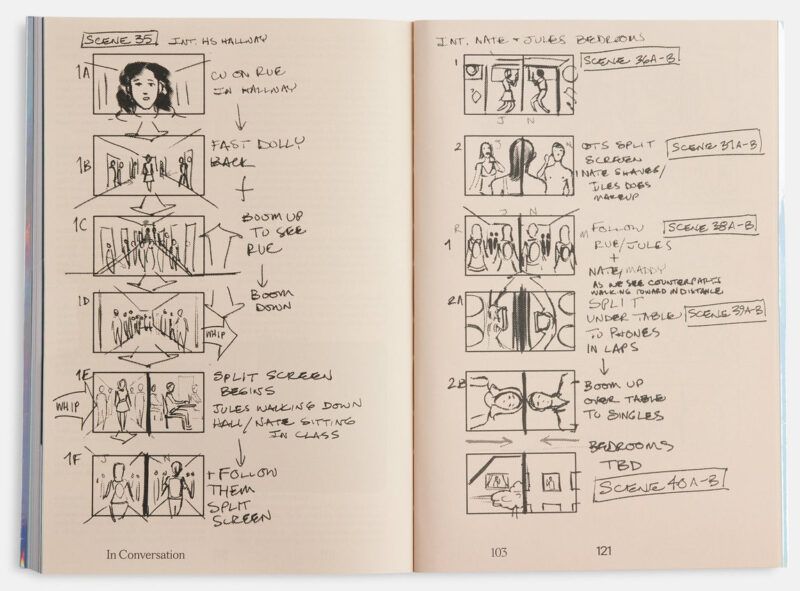 SCENE 35
INT. HS HALLWAY
1A
CU ON RUE
IN HALLWAY
1B
FAST DOLLY
BACK
+
1C
BOOM UP
TO SEE
RUE
1D
BOOM
DOWN
WHIP
1E
WHIP
SPLIT SCREEN
BEGINS
JULES WALKING DOWN
HALL/NATE SITTING
IN CLASS
1F
J N
+ FOLLOW
THEM
SPLIT
SCREEN
In Conversation
INT. NATE + JULES BEDROOMS
1
SCENE 36A-B
J N
2
J N
OTS SPLIT
SCREEN
NATE SHAVES/
JULES DOES
MAKEUP
SCENE 37A-B
R J N M
1
FOLLOW
RUE/JULES
+
NATE/MADDY
AS WE SEE COUNTERPARTS
WALKING TOWARD IN DISTANCE
SCENE 38A-B
2A
SPLIT
UNDER TABLE
TO PHONES
IN LAPS
SCENE 39A-B
2B
BOOM UP
OVER TABLE
TO SINGLES
BEDROOMS
TBD
SCENE 40A-B
103
121